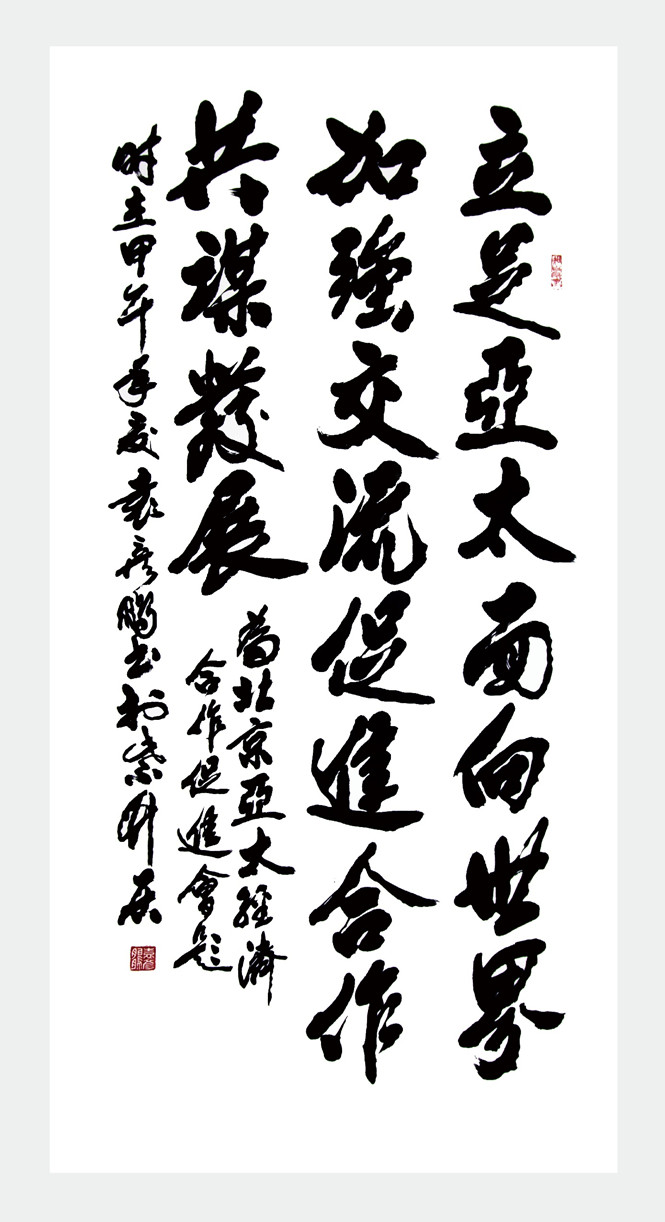 立足亞太面向世界
加強交流促進合作
共謀發展
為北京亞太經濟
合作促進會題
时在甲午年夏袁彦鵬书於紫竹居